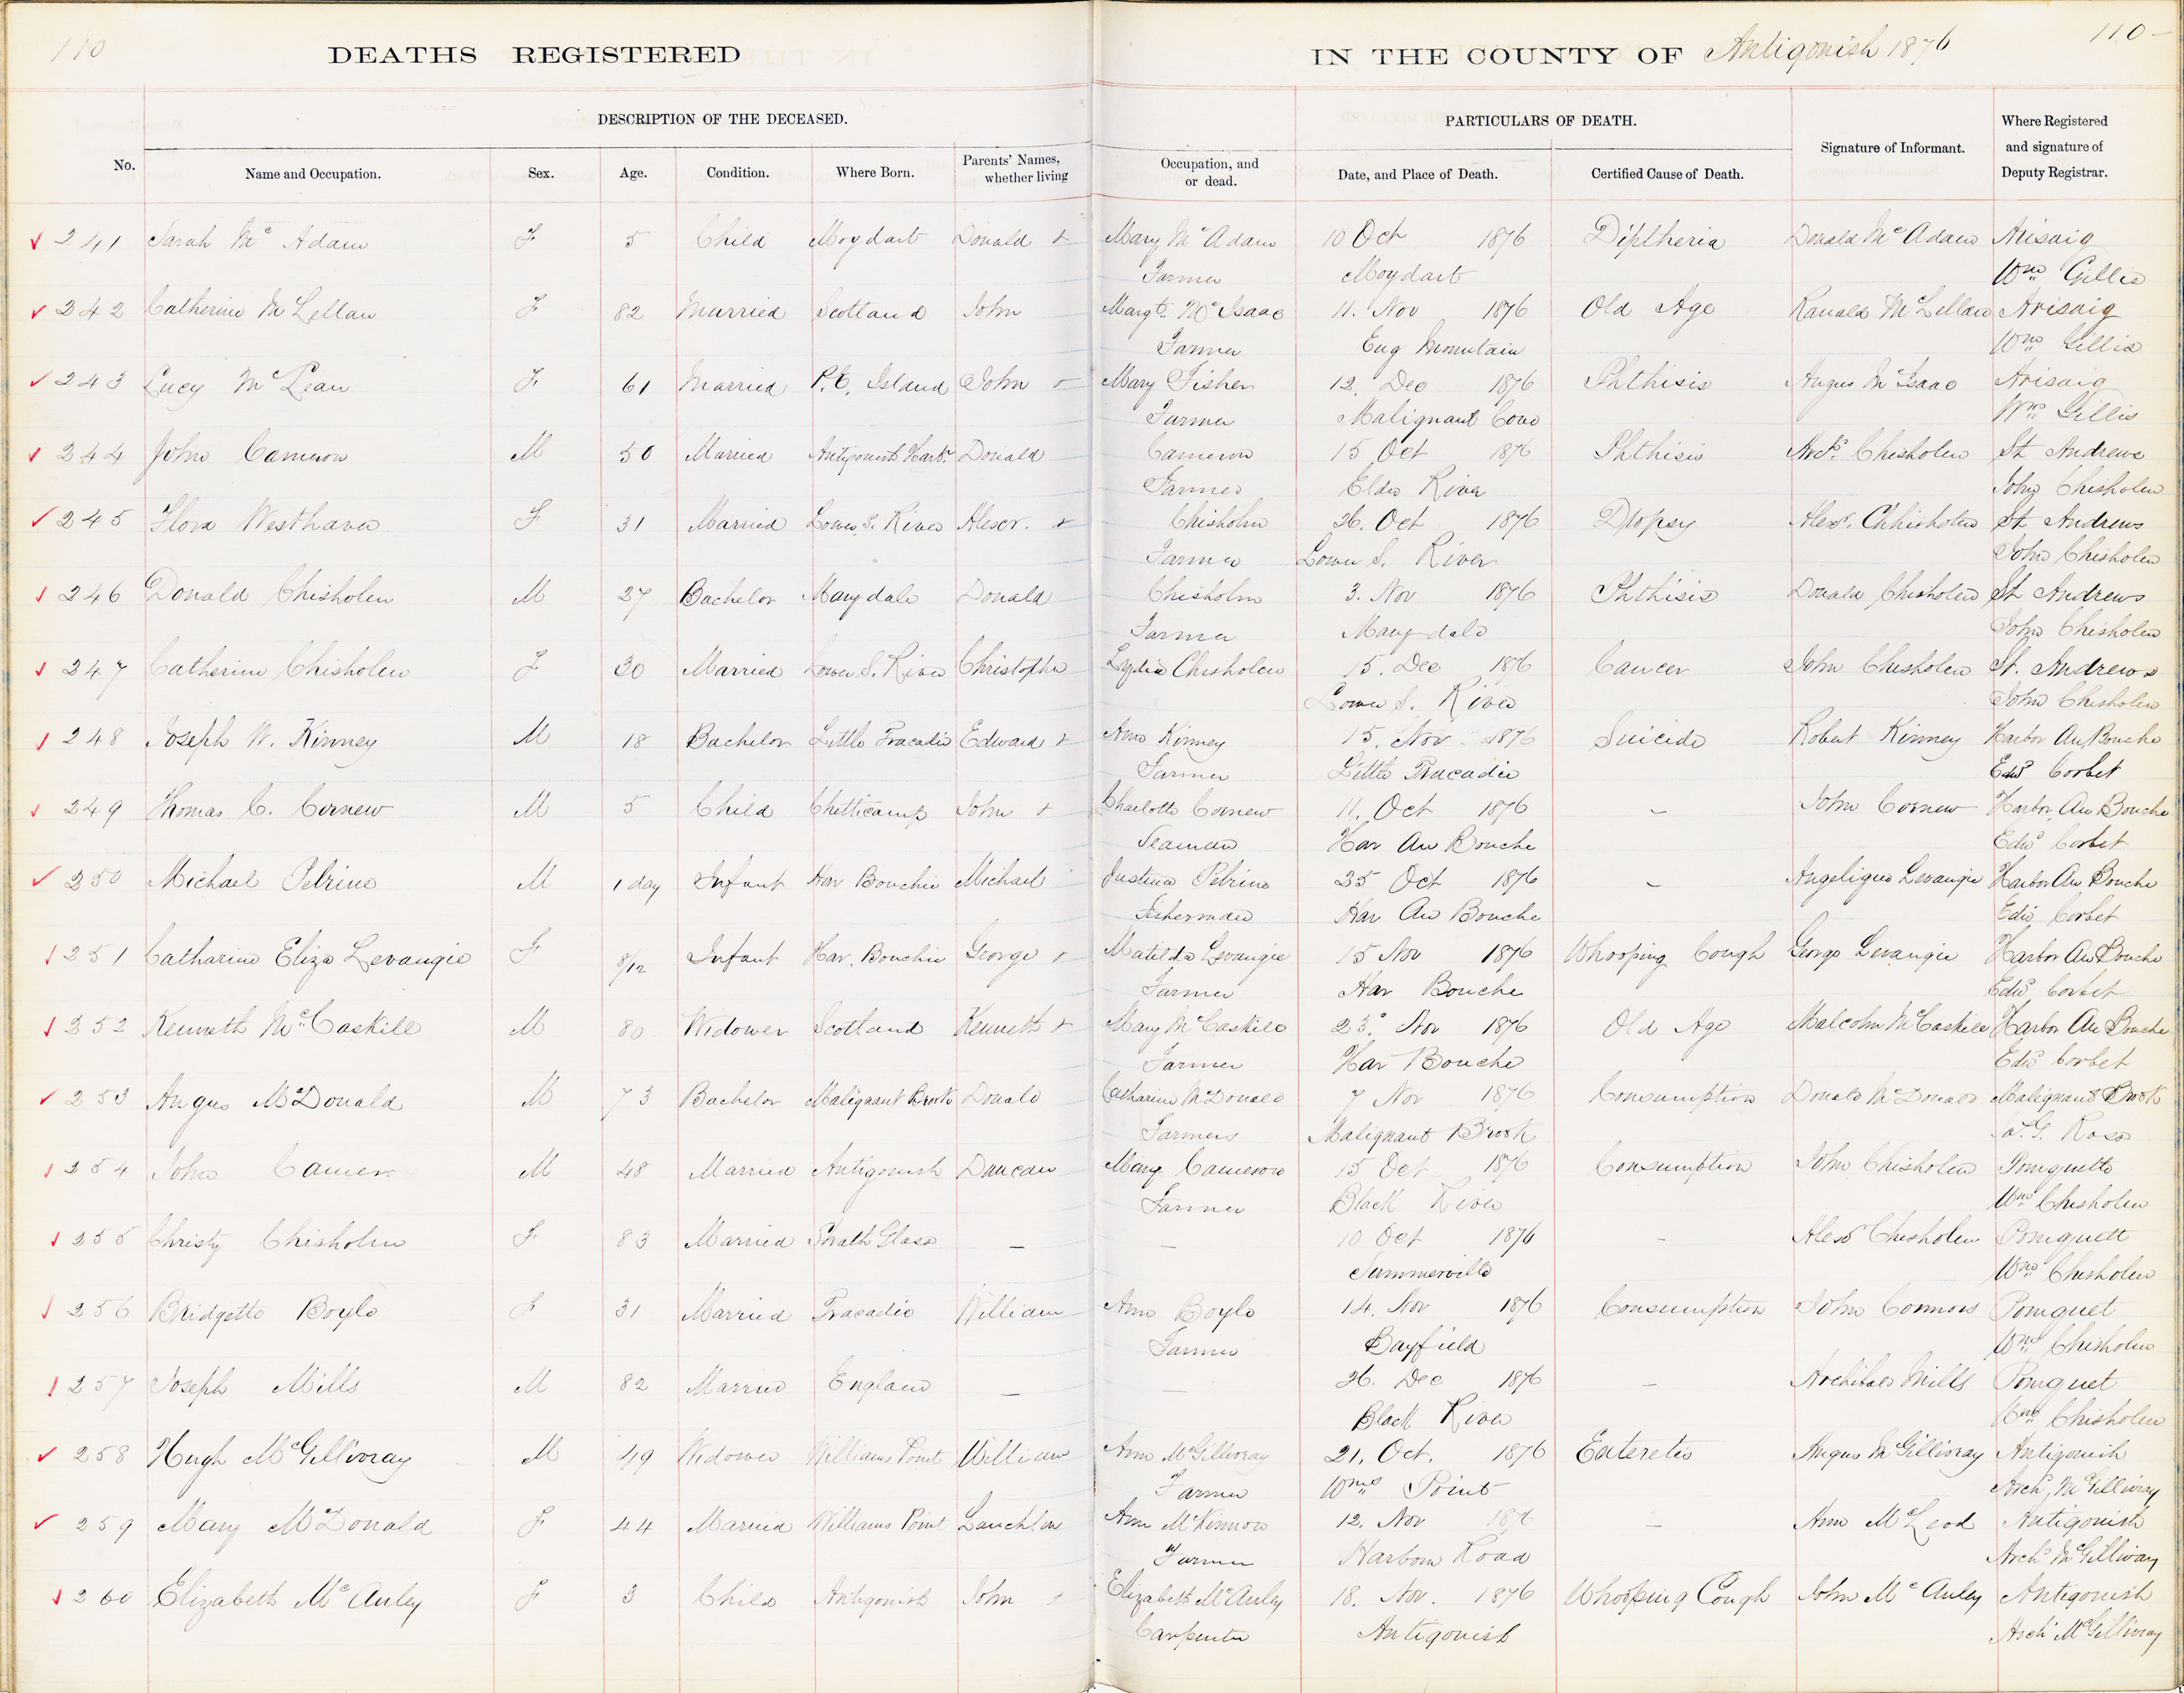 110
DEATHS REGISTERED IN THE COUNTY OF Antigonish 1876
110
DESCRIPTION OF THE DECEASED. PARTICULARS OF DEATH.
No. Name and Occupation. Sex. Age. Condition. Where Born. Parents' Names, whether living Occupation, and or dead. Date, and Place of Death. Certified Cause of Death. Signature of Informant. Where Registered and signature of Deputy Registrar.
241 Sarah Mc Adam F 5 Child Moydart Donald + Mary Mc Adam 10 Oct 1876 Diptheria Donald Mc Adam Arisaig
Farmer Moydart Wm Gillis
242 Catherine McLellan F 82 Married Scotland John Margt. McIsaac 11. Nov 1876 Old Age Ranald McLellan Arisaig
Farmer Eug Mountain Wm Gillis
243 Lucy McLean F 61 Married P.E. Island John + Mary Fisher 12. Dec 1876 Phthisis Angus McIsaac Arisaig
Farmer Malignant Cove Wm Gillis
244 John Cameron M 50 Married Antigonish Harbr. Donald Cameron 15 Oct 1876 Phthisis Chisholm St Andrews
Farmer River John Chisholm
245 Flora Westhaver F 31 Married Lower S. River Alexr. + Chisholm 26. Oct 1876 Dropsy Alexr. Chhisholm St Andrews
Farmer Lower S. River John Chisholm
246 Donald Chisholm M 27 Bachelor Marydale Donald Chisholm 3. Nov 1876 Phthisis Donald Chisholm St Andrews
Farmer Marydale John Chisholm
247 Catherine Chisholm F 30 Married Lower S. River Christopher Lydia Chisholm 15. Dec 1876 Cancer John Chisholm St. Andrews
Lower S. River John Chisholm
248 Joseph W. Kinney M 18 Bachelor Little Tracadie Edward + Ann Kinney 15. Nov 1876 Suicide Robert Kinney Harbor Au Bouche
Farmer Little Tracadie Edwd Corbet
249 Thomas C. Cornew M 5 Child Chetticamp John + Charlotte Cornew 11. Oct 1876 – John Cornew Harbor Au Bouche
Seaman Har Au Bouche Edwd Corbet
250 Michael Petrine M 1 day Infant Har Bouchie Michael Justina Petrine 25 Oct 1876 – Angelique Levangie Harbor Au Bouche
Fisherman Har Au Bouche Edwd Corbet
251 Catharine Eliza Levangie F 8/12 Infant Har. Bouchie George + Matilda Levangie 15 Nov 1876 Whooping Cough George Levangie Harbor Au Bouche
Farmer Har Bouche Edwd Corbet
252 Kenneth McCaskill M 80 Widower Scotland Kenneth + Mary McCaskill 23. Nov 1876 Old Age Malcolm McCaskill Harbor Au Bouche
Farmer Har Bouche Edwd Corbet
253 Angus McDonald M 73 Bachelor Malignant Brook Donald Catharine McDonald 7 Nov 1876 Consumption Donald McDonald Malignant Brook
Farmers Malignant Brook G. Ross
254 John Camer M 48 Married Antigonish Duncan Mary Cameron 15 Oct 1876 Consumption John Chisholm Pomquette
Farmer Black River Wm Chisholm
255 Christy Chisholm F 83 Married Srath Glass – – 10 Oct 1876 – Alexr Chisholm Pomquett
Summerville Wm Chisholm
256 Bridgette Boyle F 31 Married Tracadie William Ann Boyle 14. Nov 1876 Consumption John Connors Pomquet
Farmer Bayfield Wm Chisholm
257 Joseph Mills M 82 Married England – – 26. Dec 1876 – Archibald Mills Pomquet
Black River Wm Chisholm
258 Hugh McGillivray M 49 Widower Williams Point William Ann McGillivray 21. Oct. 1876 Enteretis Angus McGillivray Antigonish
Farmer Wms Point Archd McGillivray
259 Mary McDonald F 44 Married Williams Point Lauchlan Ann McKinnon 12. Nov 1876 – Ann McLeod Antigonish
Farmer Harbour Road Archd McGillivray
260 Elizabeth McAuley F 3 Child Antigonish John + Elizabeth McAuley 18. Nov. 1876 Whooping Cough John McAuley Antigonish
Carpenter Antigonish Archd McGillivray